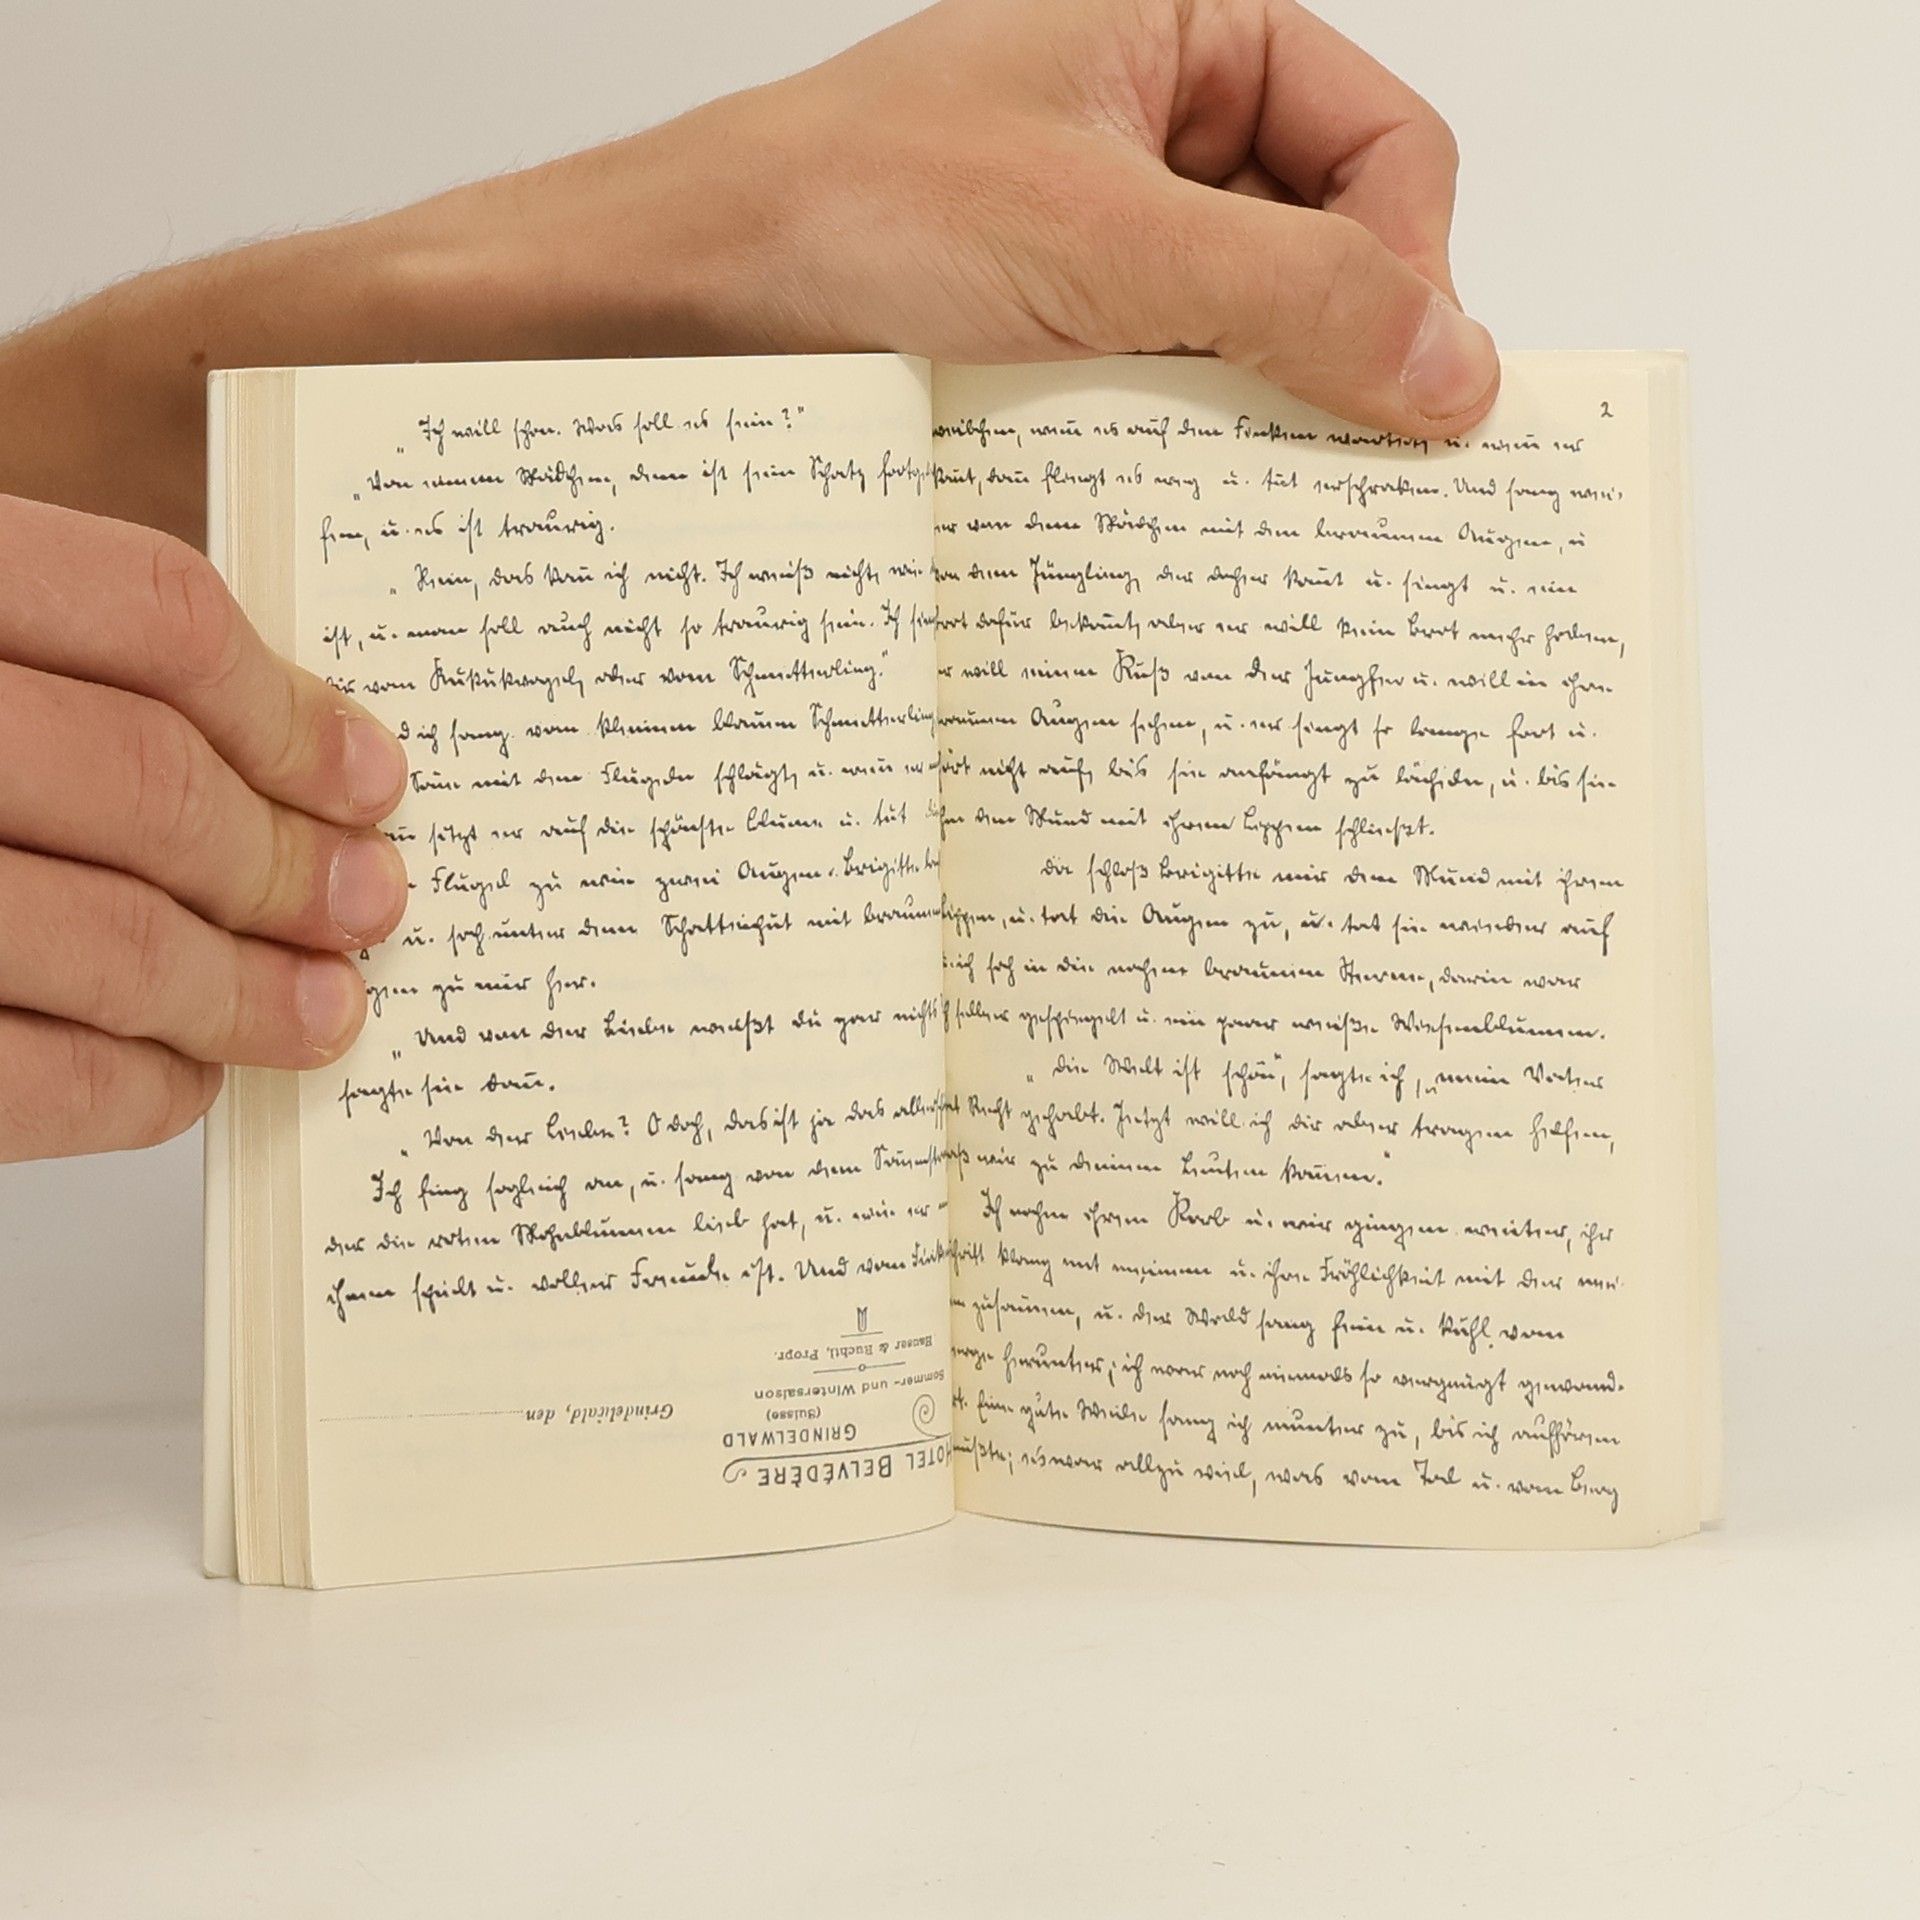 „Ich will schon. Was soll es sein?“
„Von einem Mädchen, dem ist sein Schatz fortge
sen, u. es ist traurig.
„Nein, das kan̄ ich nicht. Ich weiß nicht, wie
ist, u. man soll auch nicht so traurig sein. Ich
dir vom Kukukvogel, oder vom Schmetterling.“
d ich sang vom kleinen blauen Schmetterling
Son̄e mit den Flügeln schlägt, u. wen̄ er
sitzt er auf die schönste Blume u. tut
Flügel zu wie zwei Augen. Brigitte
u. sah unter dem Schattenhut mit braunen
gen zu mir her.
„Und von der Liebe weißt du gar nichts
sagte sie dan̄.
„Von der Liebe? O doch, das ist ja das aller
Ich fing sogleich an, u. sang von dem Son̄enst
der die roten Mohnblumen lieb hat, u. wie er
ihnen spielt u. voller Freude ist. Und vom Fink
Hauser & Ruchti, Propr.
Sommer- und Wintersaison
Grindelwald, den
(Suisse)
GRINDELWALD
HOTEL BELVÉDÈRE
2
weibchen, wen̄ es auf den Finken wartet, u. wen̄ er
kom̄t, dan̄ fliegt es weg u. tut erschrocken. Und sang wei-
er von dem Mädchen mit den braunen Augen, u
von dem Jüngling, der daher kom̄t u. singt u. ein
Brot dafür bekom̄t, aber er will kein Brot mehr haben,
er will einen Kuß von der Jungfer u. will in ihre
braunen Augen sehen, u. er singt so lange fort u.
hört nicht auf, bis sie anfängt zu lächeln, u. bis sie
ihm den Mund mit ihren Lippen schliesst.
Da schloß Brigitte mir den Mund mit ihren
Lippen, u. tat die Augen zu, u. tat sie wieder auf
u. ich sah in die nahen braunen Sterne, darin war
ich selber gespiegelt u. ein paar weiße Wiesenblumen.
„Die Welt ist schön“, sagte ich, „mein Vater
hat Recht gehabt. Jetzt will ich dir aber tragen helfen,
daß wir zu deinen Leuten kom̄en.“
Ich nahm ihren Korb u. wir gingen weiter, ihr
Schritt klang mit meinem u. ihre Fröhlichkeit mit der mei-
zusam̄en, u. der Wald sang fein u. kühl vom
Berge herunter; ich war noch niemals so vergnügt gewand-
ert. Eine gute Weile sang ich munter zu, bis ich aufhören
mußte; es war allzu viel, was vom Tal u. vom Berg